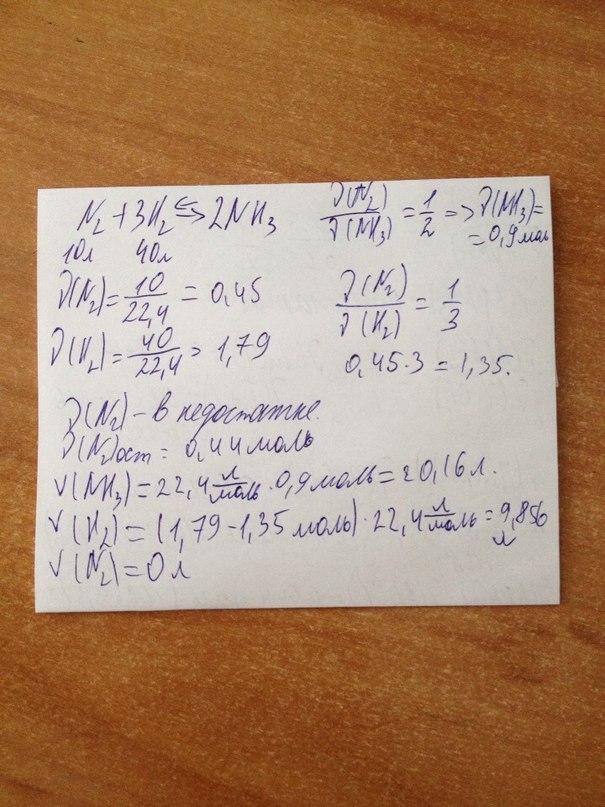 N₂ + 3H₂ ⇆ 2NH₃
10л 40л
ν(N₂) = 10/22,4 = 0,45
ν(H₂) = 40/22,4 = 1,79
ν(N₂)/ν(NH₃) = 1/2 => ν(NH₃) =
= 0,9 моль
ν(N₂)/ν(H₂) = 1/3
0,45·3 = 1,35.
ν(N₂) – в недостатке.
ν(N₂)ост = 0,44 моль
V(NH₃) = 22,4 л/моль · 0,9 моль = 20,16 л.
V(H₂) = (1,79 - 1,35 моль) · 22,4 л/моль = 9,856
л
V(N₂) = 0 л